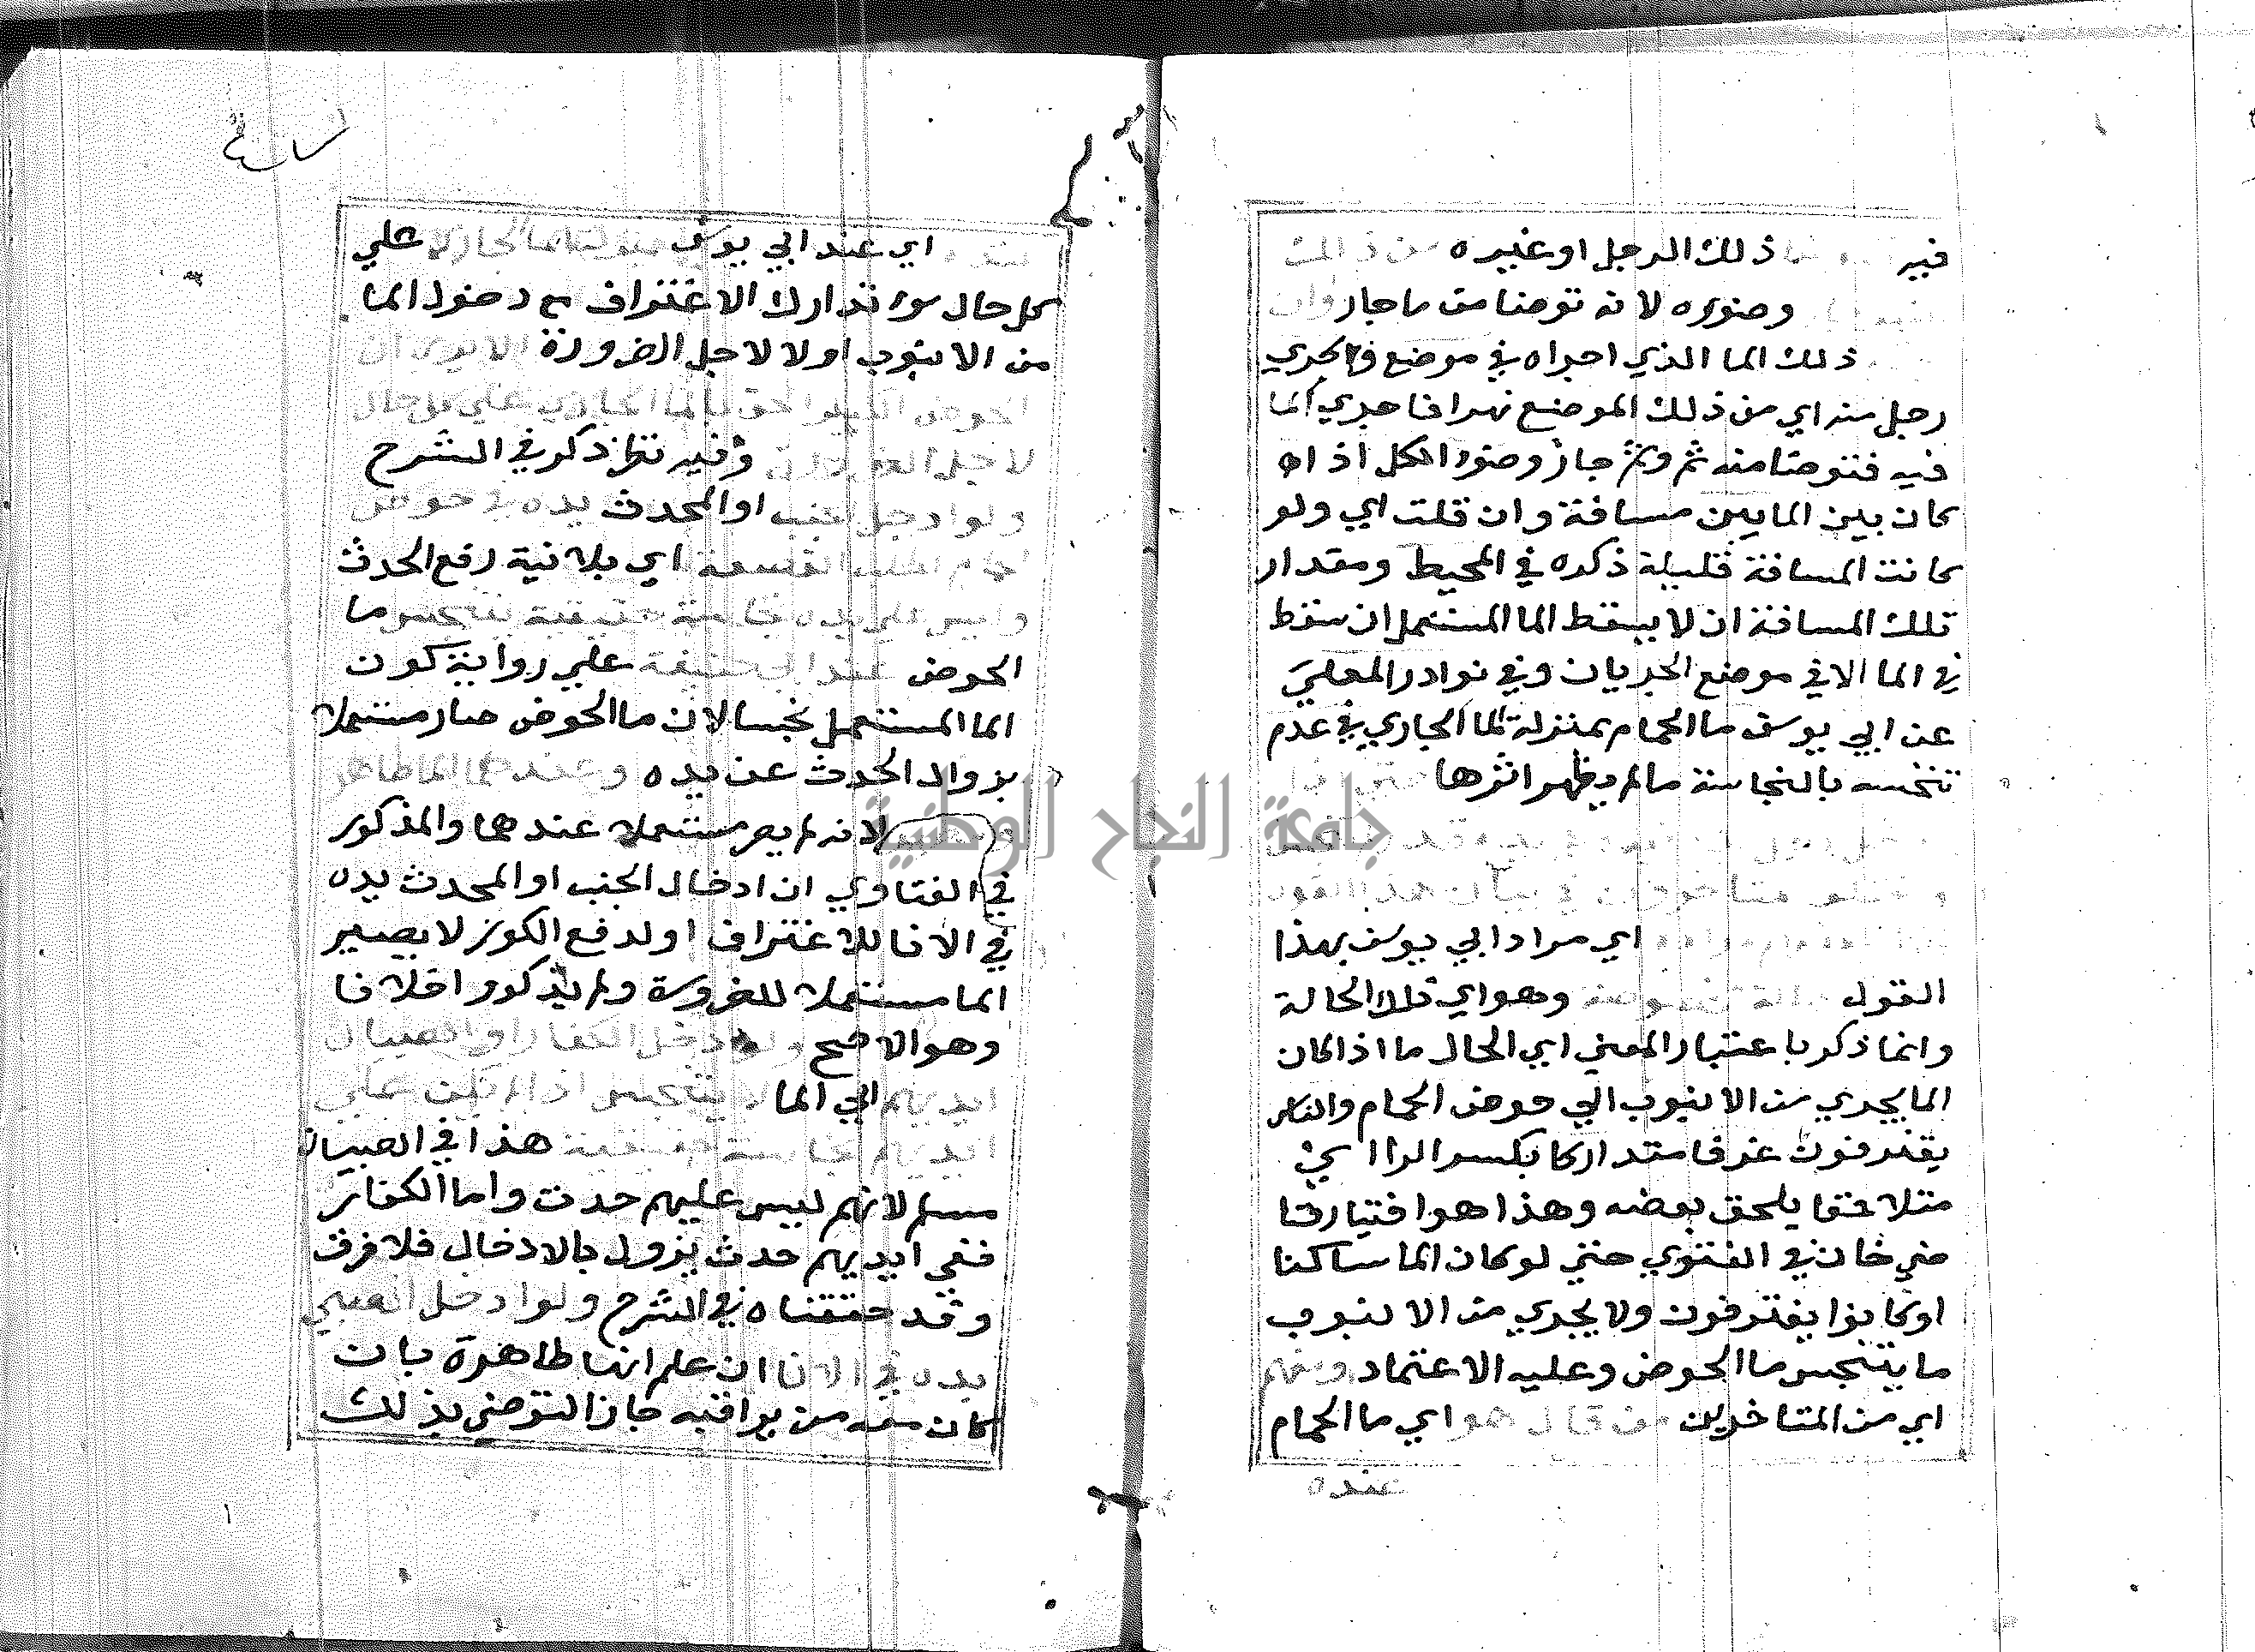 فيه ذلك الرجل او غيره من ذ الما
وضوءه لانه توضا من ما جار وان
ذلك الما الذي اجراه في موضع فاكري
رجل منه اي من ذلك الموضع نهرا فاجري الما
فيه فتوضا منه ثم وثم جاز وضوء الكل اذا
كان بين المايين مسافة وان قلت اي ولو
كانت المسافة قليلة ذكره في المحيط ومقدار
تلك المسافة ان لا يسقط الما المستعمل ان سقط
في الما الا في موضع الجريان وفي نوادر المعلي
عن ابي يوسف ما الحمام بمنزلة الما الجاري في عدم
تنجسه بالنجاسة ما لم يظهر اثرها حتي
يده قذر
متاخرون في بيان هذا القول
اي مراد ابي يوسف بهذا
القول حالة مخصوصة وهو اي تلك الحالة
وانما ذكر باعتبار المعني اي الحال ما اذا كان
الما يجري من الانبوب الي حوض الحمام والناس
يغترفون غرفا متداركا بكسر الرا اي
متلاحقا يلحق بعضه وهذا هو اختيار قا
ضي خان في الفتوي حتي لو كان الما ساكنا
او كانوا يغترفون ولا يجري من الانبوب
ما يتنجس ما الحوض وعليه الاعتماد ومنهم
اي من المتاخرين من قال هو اي ما الحمام
عنده
عنده اي عند ابي يوسف بمنزلة الما الجاري علي
كل حال سواء تدارك الاغتراف مع دخول الما
من الانبوب اولا لاجل الضرورة الا يري ان
الحوض الكبير الحق بالما الجاري علي كل حال
لاجل الضرورة وفيه نظر ذكر في الشرح
ولو ادخل الجنب او المحدث يده في حوض
الحمام لطلب القصعة اي بلا نية رفع الحدث
وليس علي يده نجاسة حقيقية يتنجس ما
الحوض عند ابي حنيفة علي رواية كون
الما المستعمل نجسا لان ما الحوض صار مستعملا
بزوال الحدث عن يده وعندهما الما طاهر
لانه لم يصر مستعملا عندهما والمذكور
في الفتاوي ان ادخال الجنب او المحدث يده
في الانا للاغتراف او لدفع الكوز لا يصير
الما مستعملا للضرورة ولم يذكروا خلافا
وهو الاصح ولو ادخل الكفار او الصبيان
ايديهم الي الما لا يتنجس اذا لم تكن علي
ايديهم نجاسة حقيقية هذا في الصبيان
مسلم لانهم ليس عليهم حدث واما الكفار
ففي ايديهم حدث يزول بالادخال فلا فرق
وقد حققناه في الشرح ولو ادخل الصبي
يده في الانا ان علم انها طاهرة بان
كان معه من يراقبه جاز التوضي بذلك
جامعة النجاح الوطنية